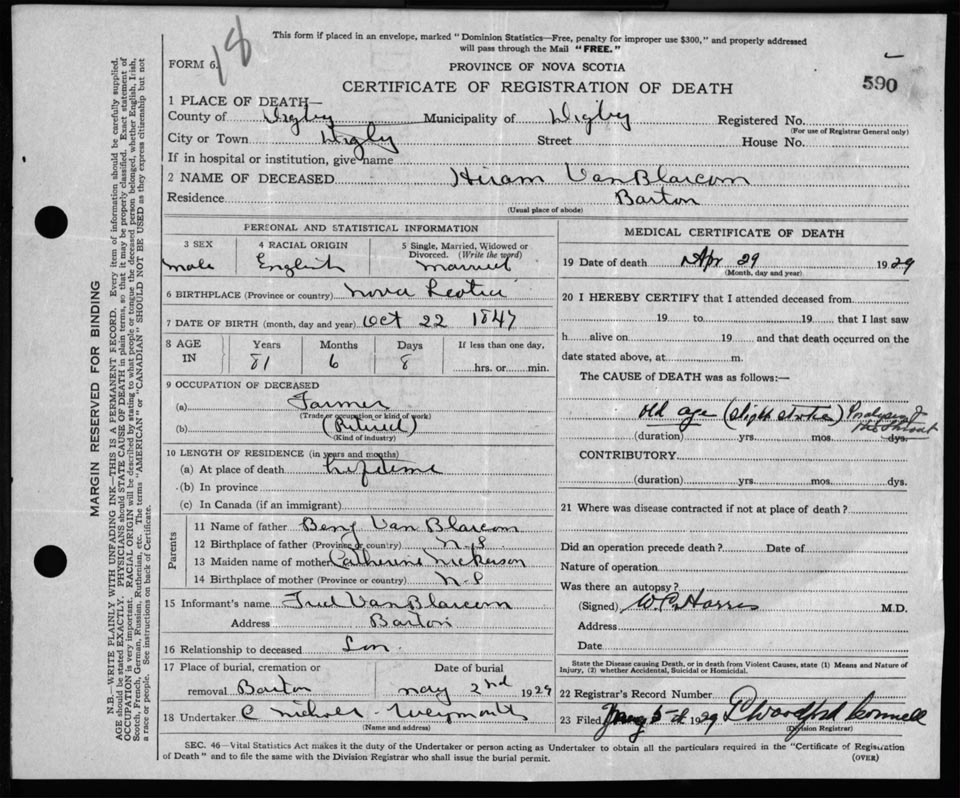 This form if placed in an envelope, marked "Dominion Statistics—Free, penalty for improper use $300," and properly addressed
will pass through the Mail "FREE."
18
FORM 6.
PROVINCE OF NOVA SCOTIA
CERTIFICATE OF REGISTRATION OF DEATH
590
1 PLACE OF DEATH—
County of Digby Municipality of Digby Registered No.
(For use of Registrar General only)
City or Town Digby Street House No.
If in hospital or institution, give name
2 NAME OF DECEASED Hiram VanBlarcom
Residence Barton
(Usual place of abode)
PERSONAL AND STATISTICAL INFORMATION
3 SEX male
4 RACIAL ORIGIN English
5 Single, Married, Widowed or
Divorced. (Write the word)
married
6 BIRTHPLACE (Province or country) Nova Scotia
7 DATE OF BIRTH (month, day and year) Oct 22 1847
8 AGE IN Years 81 Months 6 Days 8 If less than one day, hrs. or min.
9 OCCUPATION OF DECEASED
(a) Farmer
(Trade or occupation or kind of work)
(b) (Retired)
(Kind of industry)
10 LENGTH OF RESIDENCE (in years and months)
(a) At place of death Lifetime
(b) In province
(c) In Canada (if an immigrant)
Parents
11 Name of father Benj Van Blarcom
12 Birthplace of father (Province or country) N.S
13 Maiden name of mother Catherine Nickerson
14 Birthplace of mother (Province or country) N-S
15 Informant's name Fred VanBlarcom
Address Barton
16 Relationship to deceased Son
17 Place of burial, cremation or
removal Barton
Date of burial
May 2nd 1929
18 Undertaker C Nichols - Weymouth
(Name and address)
MEDICAL CERTIFICATE OF DEATH
19 Date of death Apr 29 1929
(Month, day and year)
20 I HEREBY CERTIFY that I attended deceased from
19 to 19 that I last saw
h alive on 19 and that death occurred on the
date stated above, at m.
The CAUSE of DEATH was as follows:—
old age (slight stroke) Paralysis of the throat
(duration) yrs. mos. dys.
CONTRIBUTORY
(duration) yrs. mos. dys.
21 Where was disease contracted if not at place of death?
Did an operation precede death? Date of
Nature of operation
Was there an autopsy?
(Signed) M.D.
Address
Date
State the Disease causing Death, or in death from Violent Causes, state (1) Means and Nature of
Injury, (2) whether Accidental, Suicidal or Homicidal.
22 Registrar's Record Number
23 Filed 1929
(Division Registrar)
SEC. 46—Vital Statistics Act makes it the duty of the Undertaker or person acting as Undertaker to obtain all the particulars required in the "Certificate of Registration
of Death" and to file the same with the Division Registrar who shall issue the burial permit.
(OVER)
MARGIN RESERVED FOR BINDING
N.B.—WRITE PLAINLY WITH UNFADING INK—THIS IS A PERMANENT RECORD. Every item of information should be carefully supplied.
AGE should be stated EXACTLY. PHYSICIANS should STATE CAUSE OF DEATH in plain terms, so that it may be properly classified. Exact statement of
OCCUPATION is very important. RACIAL ORIGIN will be described by stating to what people or tongue the deceased person belonged, whether English, Irish,
Scotch, French, German, Russian, Ruthenian, etc. The terms "AMERICAN" or "CANADIAN" SHOULD NOT BE USED as they express citizenship but not
a race or people. See instructions on back of Certificate.